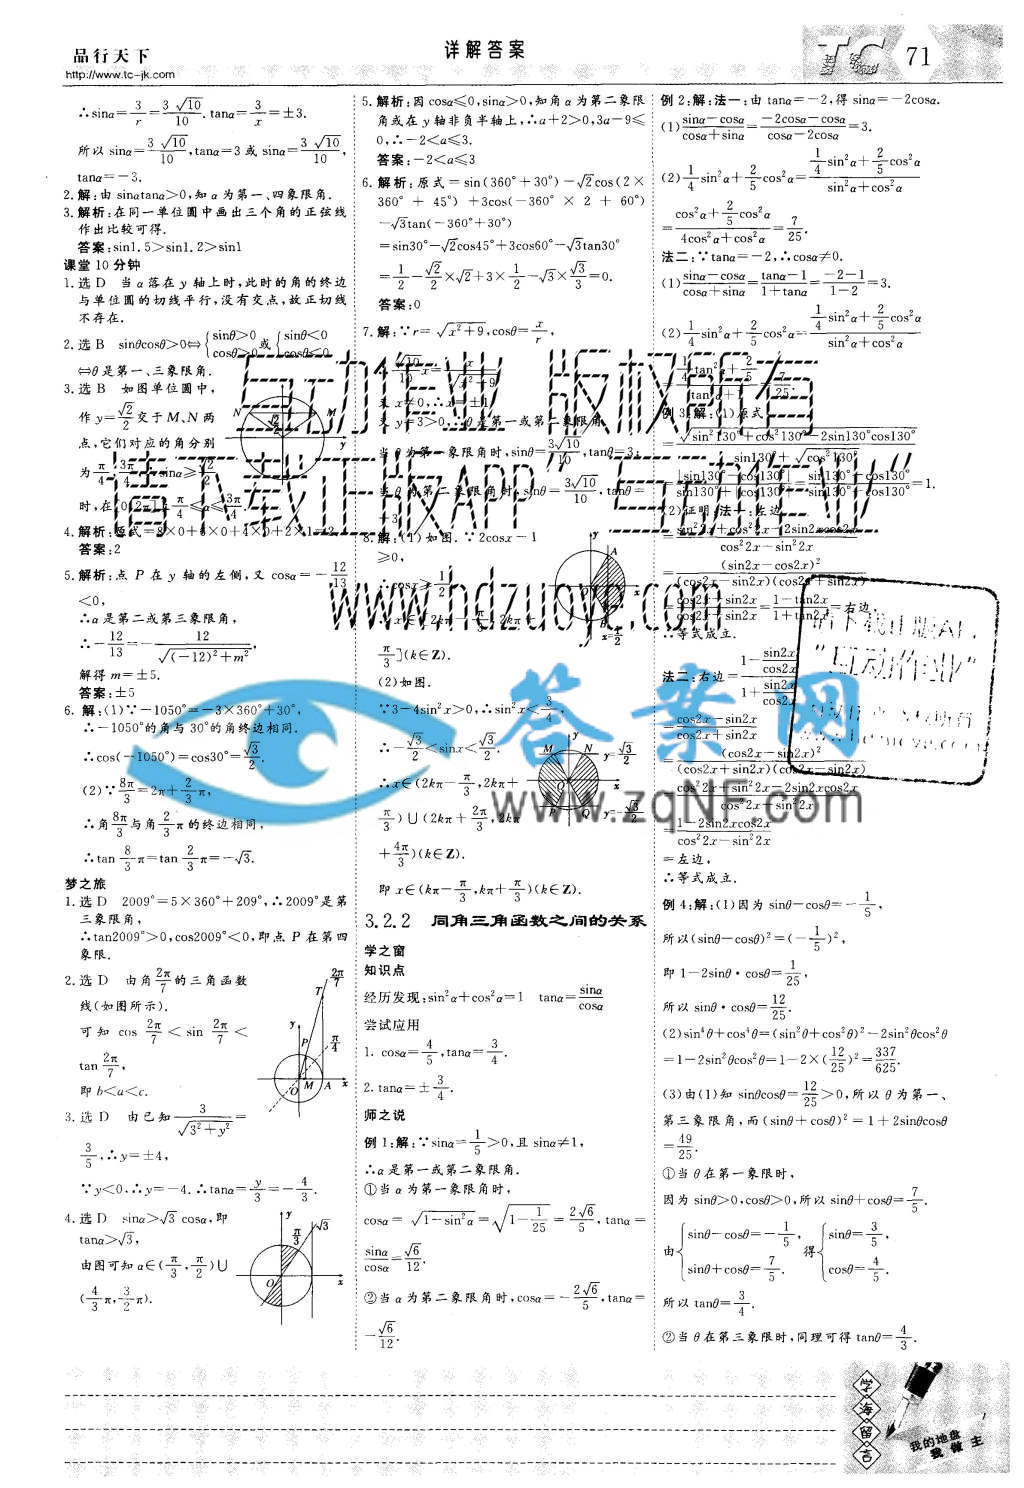 品行天下
http://www.tc-jk.com
详解答案
TC 71
∴sinα=3/r=3√10/10. tanα=3/x=±3.
所以 sinα=3√10/10, tanα=3 或 sinα=3√10/10,
tanα=-3.
2.解:由 sinαtanα>0,知 α 为第一、四象限角.
3.解析:在同一单位圆中画出三个角的正弦线
作出比较可得.
答案:sin1.5>sin1.2>sin1
课堂 10 分钟
1.选 D 当 α 落在 y 轴上时,此时的角的终边
与单位圆的切线平行,没有交点,故正切线
不存在.
2.选 B sinθcosθ>0⇔{sinθ>0 cosθ>0 或 {sinθ<0 cosθ<0
⇔θ 是第一、三象限角.
3.选 B 如图单位圆中,
作 y=√2/2 交于 M、N 两
点,它们对应的角分别
为 π/4, 3π/4, sinα≥√2/2
时,在[0,2π]上 π/4≤α≤3π/4.
4.解析:原式=8×0+6×0+4×0+2×1=2
答案:2
5.解析:点 P 在 y 轴的左侧,又 cosα=-12/13
<0,
∴α 是第二或第三象限角,
∴-12/13=-12/√((-12)²+m²),
解得 m=±5.
答案:±5
6.解:(1)∵-1050°=-3×360°+30°,
∴-1050°的角与 30°的角终边相同.
∴cos(-1050°)=cos30°=√3/2.
(2)∵8π/3=2π+2/3π,
∴角 8π/3 与角 2/3π 的终边相同,
∴tan8/3π=tan2/3π=-√3.
梦之旅
1.选 D 2009°=5×360°+209°,∴2009°是第
三象限角,
∴tan2009°>0,cos2009°<0,即点 P 在第四
象限.
2.选 D 由角 2π/7 的三角函数
线(如图所示).
可知 cos 2π/7 < sin 2π/7 <
tan 2π/7,
即 b<a<c.
3.选 D 由已知 3/√(3²+y²)
3/5,∴y=±4,
∵y<0,∴y=-4.∴tanα=y/3=-4/3.
4.选 D sinα>√3 cosα,即
tanα>√3,
由图可知 α∈(π/3,π/2)∪
(4/3π,3/2π).
5.解析:因 cosα≤0,sinα>0,知角 α 为第二象限
角或在 y 轴非负半轴上,∴a+2>0,3a-9≤
0,∴-2<a≤3.
答案:-2<a≤3
6.解析:原式=sin(360°+30°)-√2cos(2×
360°+45°)+3cos(-360°×2+60°)
-√3tan(-360°+30°)
=sin30°-√2cos45°+3cos60°-√3tan30°
=1/2-√2/2×√2+3×1/2-√3×√3/3=0.
答案:0
7.解:∵r=√(x²+9),cosθ=x/r,
∴√10/10 x=x/√(x²+9)
又 x≠0,∴x=±1
又 y=3>0,∴θ 是第一或第二象限角
当 θ 为第一象限角时,sinθ=3√10/10,tanθ=3;
当 θ 为第二象限角时,sinθ=3√10/10,tanθ=
-3.
8.解:(1)如图.∵2cosx-1
≥0,
∴cosx≥1/2
∴x∈[2kπ-π/3,2kπ+
π/3](k∈Z).
(2)如图.
∵3-4sin²x>0,∴sin²x<3/4,
∴-√3/2<sinx<√3/2.
∴x∈(2kπ-π/3,2kπ+
π/3)∪(2kπ+2π/3,2kπ
+4π/3)(k∈Z).
即 x∈(kπ-π/3,kπ+π/3)(k∈Z).
3.2.2 同角三角函数之间的关系
学之窗
知识点
经历发现:sin²α+cos²α=1 tanα=sinα/cosα
尝试应用
1. cosα=4/5,tanα=3/4.
2. tanα=±3/4.
师之说
例 1:解:∵sinα=1/5>0,且 sinα≠1,
∴α 是第一或第二象限角.
①当 α 为第一象限角时,
cosα=√(1-sin²α)=√(1-1/25)=2√6/5,tanα=
sinα/cosα=√6/12.
②当 α 为第二象限角时,cosα=-2√6/5,tanα=
-√6/12.
例 2:解:法一:由 tanα=-2,得 sinα=-2cosα.
(1)(sinα-cosα)/(cosα+sinα)=(-2cosα-cosα)/(cosα-2cosα)=3.
(2)1/4sin²α+2/5cos²α=(1/4sin²α+2/5cos²α)/(sin²α+cos²α)
=(cos²α+2/5cos²α)/(4cos²α+cos²α)=7/25.
法二:∵tanα=-2,∴cosα≠0.
(1)(sinα-cosα)/(cosα+sinα)=(tanα-1)/(1+tanα)=(-2-1)/(1-2)=3.
(2)1/4sin²α+2/5cos²α=(1/4sin²α+2/5cos²α)/(sin²α+cos²α)
=(1/4tan²α+2/5)/(tan²α+1)=7/25.
例 3:解:(1)原式
=√(sin²130°+cos²130°-2sin130°cos130°)/(sin130°+√cos²130°)
=|sin130°-cos130°|/(sin130°+|cos130°|)=(sin130°-cos130°)/(sin130°-cos130°)=1.
(2)证明:法一:左边
=(sin²2x+cos²2x-2sin2xcos2x)/(cos²2x-sin²2x)
=(sin2x-cos2x)²/((cos2x-sin2x)(cos2x+sin2x))
=(cos2x-sin2x)/(cos2x+sin2x)=(1-tan2x)/(1+tan2x)=右边,
∴等式成立.
法二:右边=(1-sin2x/cos2x)/(1+sin2x/cos2x)
=(cos2x-sin2x)/(cos2x+sin2x)
=(cos2x-sin2x)²/((cos2x+sin2x)(cos2x-sin2x))
=(cos²2x+sin²2x-2sin2xcos2x)/(cos²2x-sin²2x)
=(1-2sin2xcos2x)/(cos²2x-sin²2x)
=左边,
∴等式成立.
例 4:解:(1)因为 sinθ-cosθ=-1/5,
所以(sinθ-cosθ)²=(-1/5)²,
即 1-2sinθ·cosθ=1/25,
所以 sinθ·cosθ=12/25.
(2)sin⁴θ+cos⁴θ=(sin²θ+cos²θ)²-2sin²θcos²θ
=1-2sin²θcos²θ=1-2×(12/25)²=337/625.
(3)由(1)知 sinθcosθ=12/25>0,所以 θ 为第一、
第三象限角,而(sinθ+cosθ)²=1+2sinθcosθ
=49/25.
①当 θ 在第一象限时,
因为 sinθ>0,cosθ>0,所以 sinθ+cosθ=7/5.
由{sinθ-cosθ=-1/5, sinθ+cosθ=7/5. 得{sinθ=3/5, cosθ=4/5.
所以 tanθ=3/4.
②当 θ 在第三象限时,同理可得 tanθ=4/3.
互动作业 版权所有
请下载正版APP"互动作业"
www.hdzuoye.com
答案网
www.zqNF.com
学海留言
我的地盘
我做主